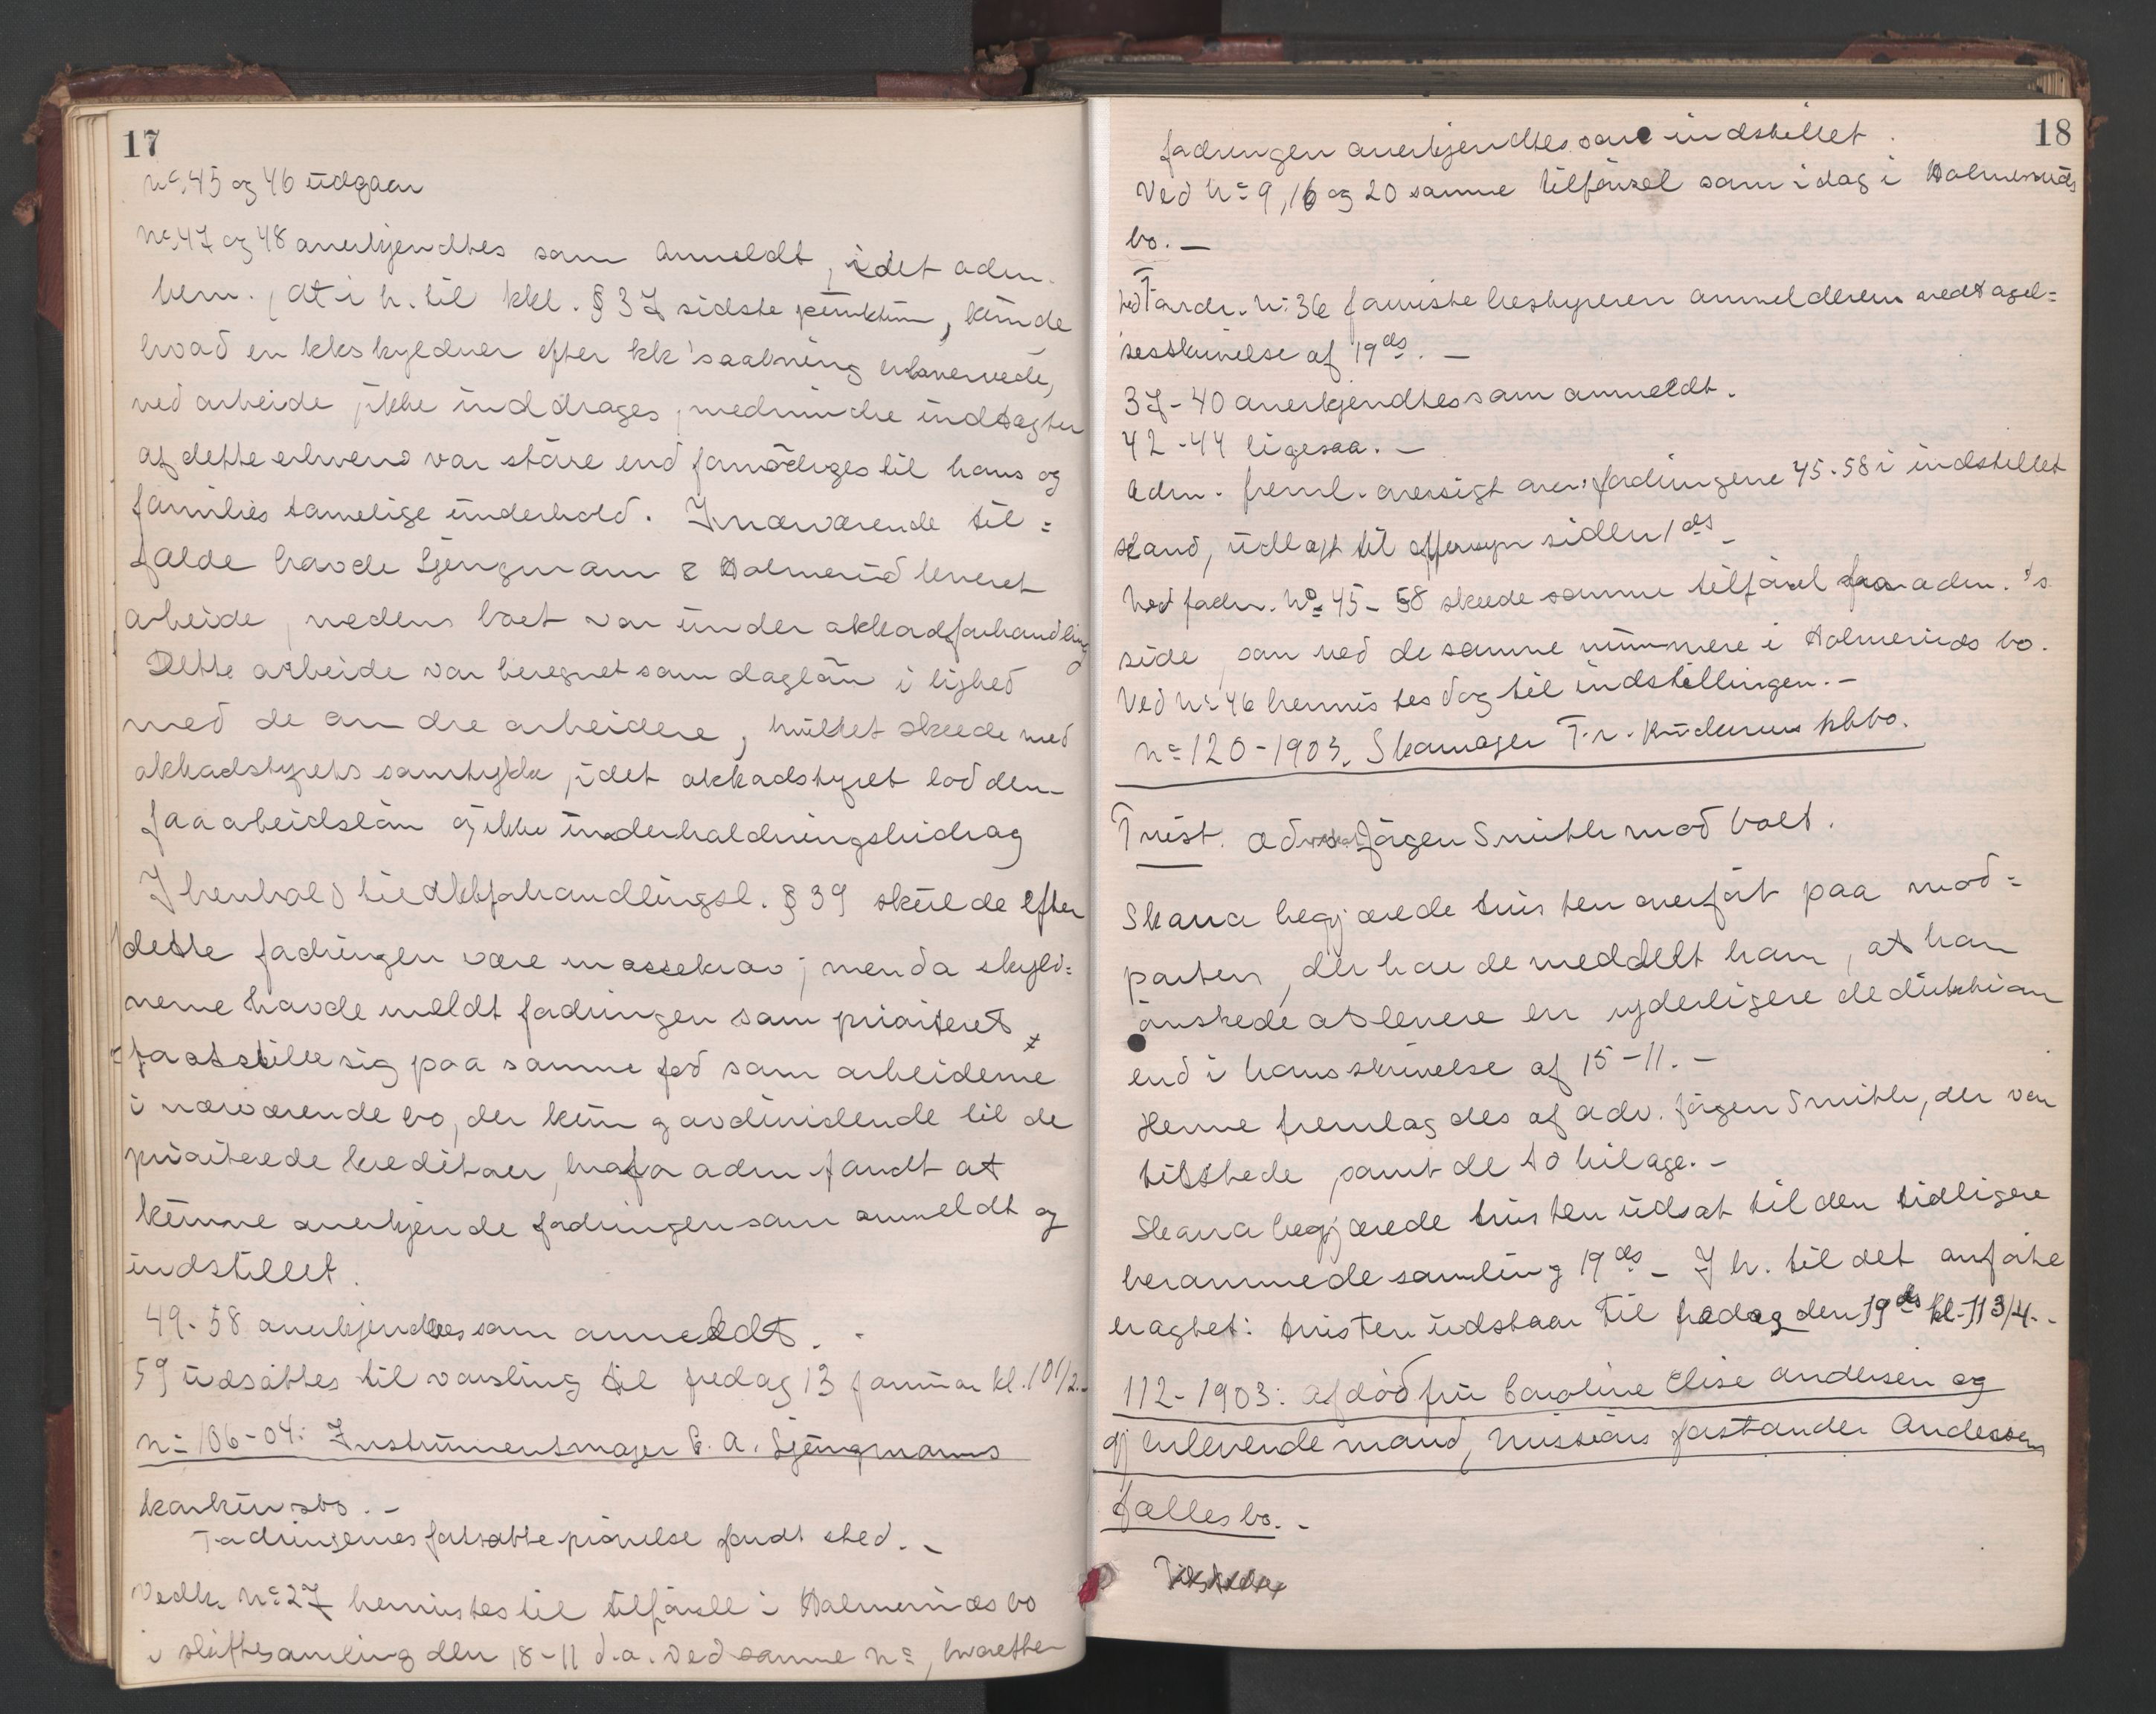 17
No. 45 og 46 udgaar
No. 47 og 48 anerkjendtes som anmeldt, idet adm.
bem., at i h. til kkl. § 37 sidste punktum, kunde
hvad en kkskyldner efter kk'saabning erhvervede,
ved arbeide, ikke inddrages, medmindre indtægten
af dette erhverv var større end fornødiges til hans og
families tarvelige underhold. I nærværende til=
fælde havde Ljungmann & Holmerud leveret
arbeide, medens boet var under akkordforhandling
Dette arbeide var beregnet som dagløn i lighed
med de andre arbeidere, hvilket skeede med
akkordstyrets samtykke, idet akkordstyret lod dem
faa arbeidsløn og ikke underholdningsbidrag
I henhold til akkforhandlingsl. § 39 skulde efter
dette fordringen være massekrav; men da skyld=
nerne havde meldt fordringen som prioriteret
for at stille sig paa samme fod som arbeiderne
i nærværende bo, der kun gav dividende til de
prioriterede kreditorer, hvorfor adm fandt at
kunne anerkjende fordringen som anmeldt og
indstillet.
49-58 anerkjendtes som anmeldt.
59 udsattes til varsling til fredag 13 januar kl. 10 1/2.-
No 106-04: Instrumentmager C. A. Ljungmanns
konkursbo. -
Fordringernes fortsatte prøvelse fandt sted. -
Vedk. No 27 henvistes til tilførsel i Holmeruds bo
i skiftesamling den 18-11 d.a. ved samme No, hvorefter
18
fordringen anerkjendtes som indstillet.
Ved No 9, 16 og 20 samme tilførsel som idag i Holmeruds
bo. -
Ved fordr. No 36 foreviste bestyreren anmelderens vedtagel=
sesskrivelse af 19ds. -
37-40 anerkjendtes som anmeldt.
42-44 ligesaa. -
Adm. freml. oversigt over fordringerne 45-58 i indstillet
stand, udlagt til eftersyn siden 1ds -
Ved fordr. No 45-58 skeede samme tilførsel fra adm.'s
side, som ved de samme nummere i Holmeruds bo.
Ved No 46 henvistes dog til indstillingen. -
No 120-1903. Skomager Fr. Knudsens kkbo.
Tvist. Advokat Jørgen Smith mod boet.
Skara begjærede tvisten overført paa mod=
parten, der havde meddelt ham, at han
ønskede at levere en yderligere deduktion
end i hans skrivelse af 15-11. -
Denne fremlagdes af adv. Jørgen Smith, der var
tilstede, samt de to bilage. -
Skara begjærede tvisten udsat til den tidligere
berammede samling 19ds - I h. til det anførte
eragtet: tvisten udstaar til fredag den 19ds kl. 11 3/4. -
112-1903: Afdød fru Caroline Elise Andersen og
gjenlevende mand, missionsforstander Andersens
fællesbo. -